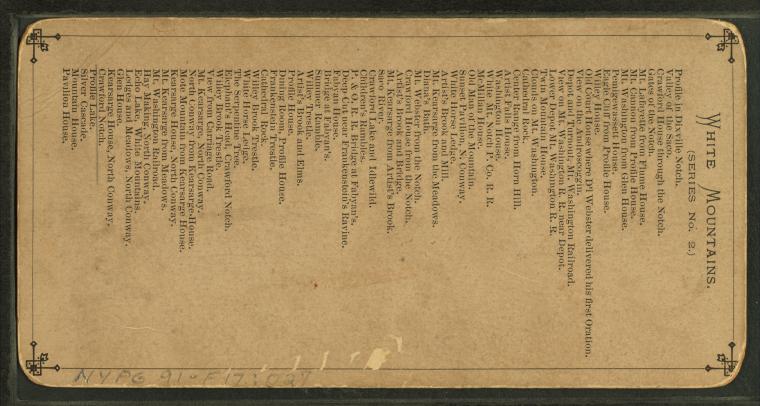 WHITE MOUNTAINS.
(SERIES No. 2.)
Profile in Dixville Notch.
Valley of the Saco.
Crawford House through the Notch.
Gates of the Notch.
Mt. Lafayette from Flume House.
Mt. Cannon and Profile House.
Mt. Washington from Glen House.
Pemigewassett House.
Eagle Cliff and Profile House.
Willey House.
Old Court House where D'l Webster delivered his first Oration.
View on the Androscoggin.
Depot and Turnout, Mt. Washington Railroad.
View of Mt. Washington R. R. near Depot.
Lower Depot Mt. Washington R. R.
Twin Mountain House.
Clouds on Mt. Washington.
Cathedral Rock.
Center Range from Horn Hill.
Artist's Falls House.
Washington House.
White Mt. Notch P. &. O. R. R.
McMillan House.
Old Man of the Mountain.
Sunset Pavilion, N. Conway.
White Horse Ledge.
Artist's Brook and Mill.
Mt. Kearsarge from the Meadows.
Diana's Bath.
Mt. Webster from the Notch.
Crawford House from the Notch.
Artist's Brook and Bridge.
Mt. Kearsarge from Artist's Brook.
Saco
Crawford Lake and Idlewild.
Children's Rambles.
P. & O. R. R. Bridge at Fabyan's.
Deep Cut near Frankenstein's Ravine.
Fabyan House.
Bridge at Fabyan's.
Summer Ramble.
Willey Brook Trestle.
Artist's Brook and Elms.
Profile House.
Dining Room, Profile House.
Frankenstein Trestle.
Cathedral Rock.
Willey Brook Trestle.
White Horse Ledge.
The Serpentine Tree.
Elephant's Head, Crawford Notch.
Willey Brook Trestle.
View from Carriage Road.
Mt. Kearsarge, North Conway.
North Conway from Kearsarge-House.
Moat Mountain from Kearsarge House.
Kearsarge House, North Conway.
Mt. Kearsarge from Meadows.
Mt. Washington Railroad.
Hay Making, North Conway.
Echo Lake, White Mountains.
Ledges and Meadows, North Conway.
Glen House.
Kearsarge House, North Conway.
Crawford Notch.
Profile Lake.
Silver Cascade.
Mountain House.
Pavilion House.
NYPG 91-F17: 027